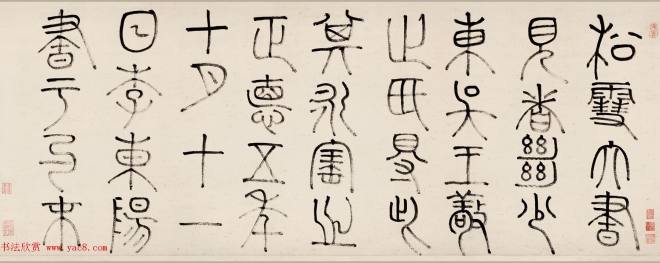 松雪大書
見者絕少
東吳王敬
止得此
其永寶之
正德五年
十月十一
日李東陽
書于卷末
书法欣赏 www.yac8.com